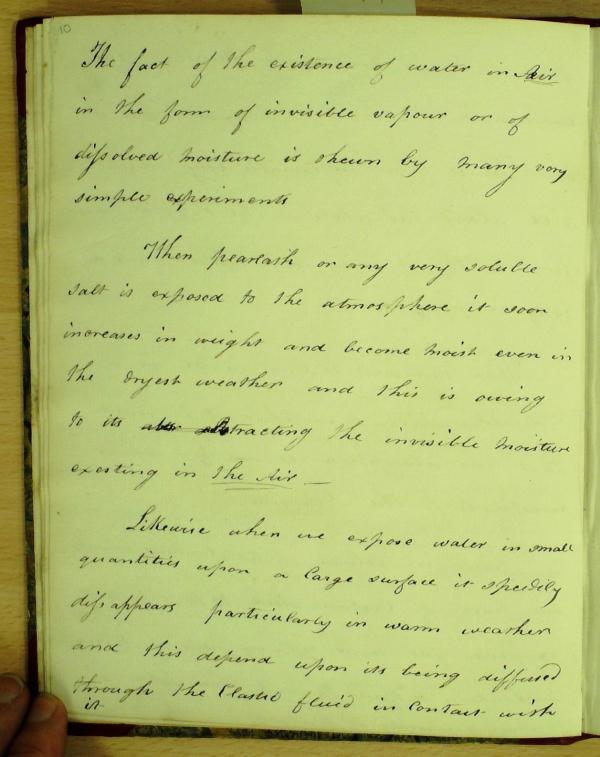 10
The fact of the existence of water in Air
in the form of invisible vapour or of
dissolved moisture is shewn by many very
simple experiments
When pearlash or any very soluble
salt is exposed to the atmosphere it soon
increases in weight and become moist even in
the dryest weather and this is owing
to its attracting the invisible moisture
existing in the Air —
Likewise when we expose water in small
quantities upon a large surface it speedily
dissappears particularly in warm weather
and this depend upon its being diffused
through the Elastic fluid in contact with
it